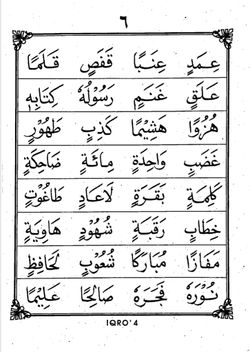 ٦
عِمَدٍ عِنَبًا قَفَصٍ قَلَمًا
عَلَقٍ غَنَمٍ رَسُوْلُهُ كِتَابِهِ
هُزُوًا هَشِيْمًا كَذِبٍ طَهُوْرٍ
غَضَبٍ وَاحِدَةٍ مِائَةٍ ضَاحِكَةٍ
كَلِمَةٍ بَقَرَةٍ لَاعَادٍ طَاغُوْتٍ
خِطَابٍ رَقَبَةٍ شُهُوْدٍ هَاوِيَةٍ
مَفَازًا مُبَارَكًا شُعُوْبٍ لَحَافِظٍ
نُوْرُهُ فَجَرَهُ صَالِحًا عَلِيْمًا
IQRO' 4